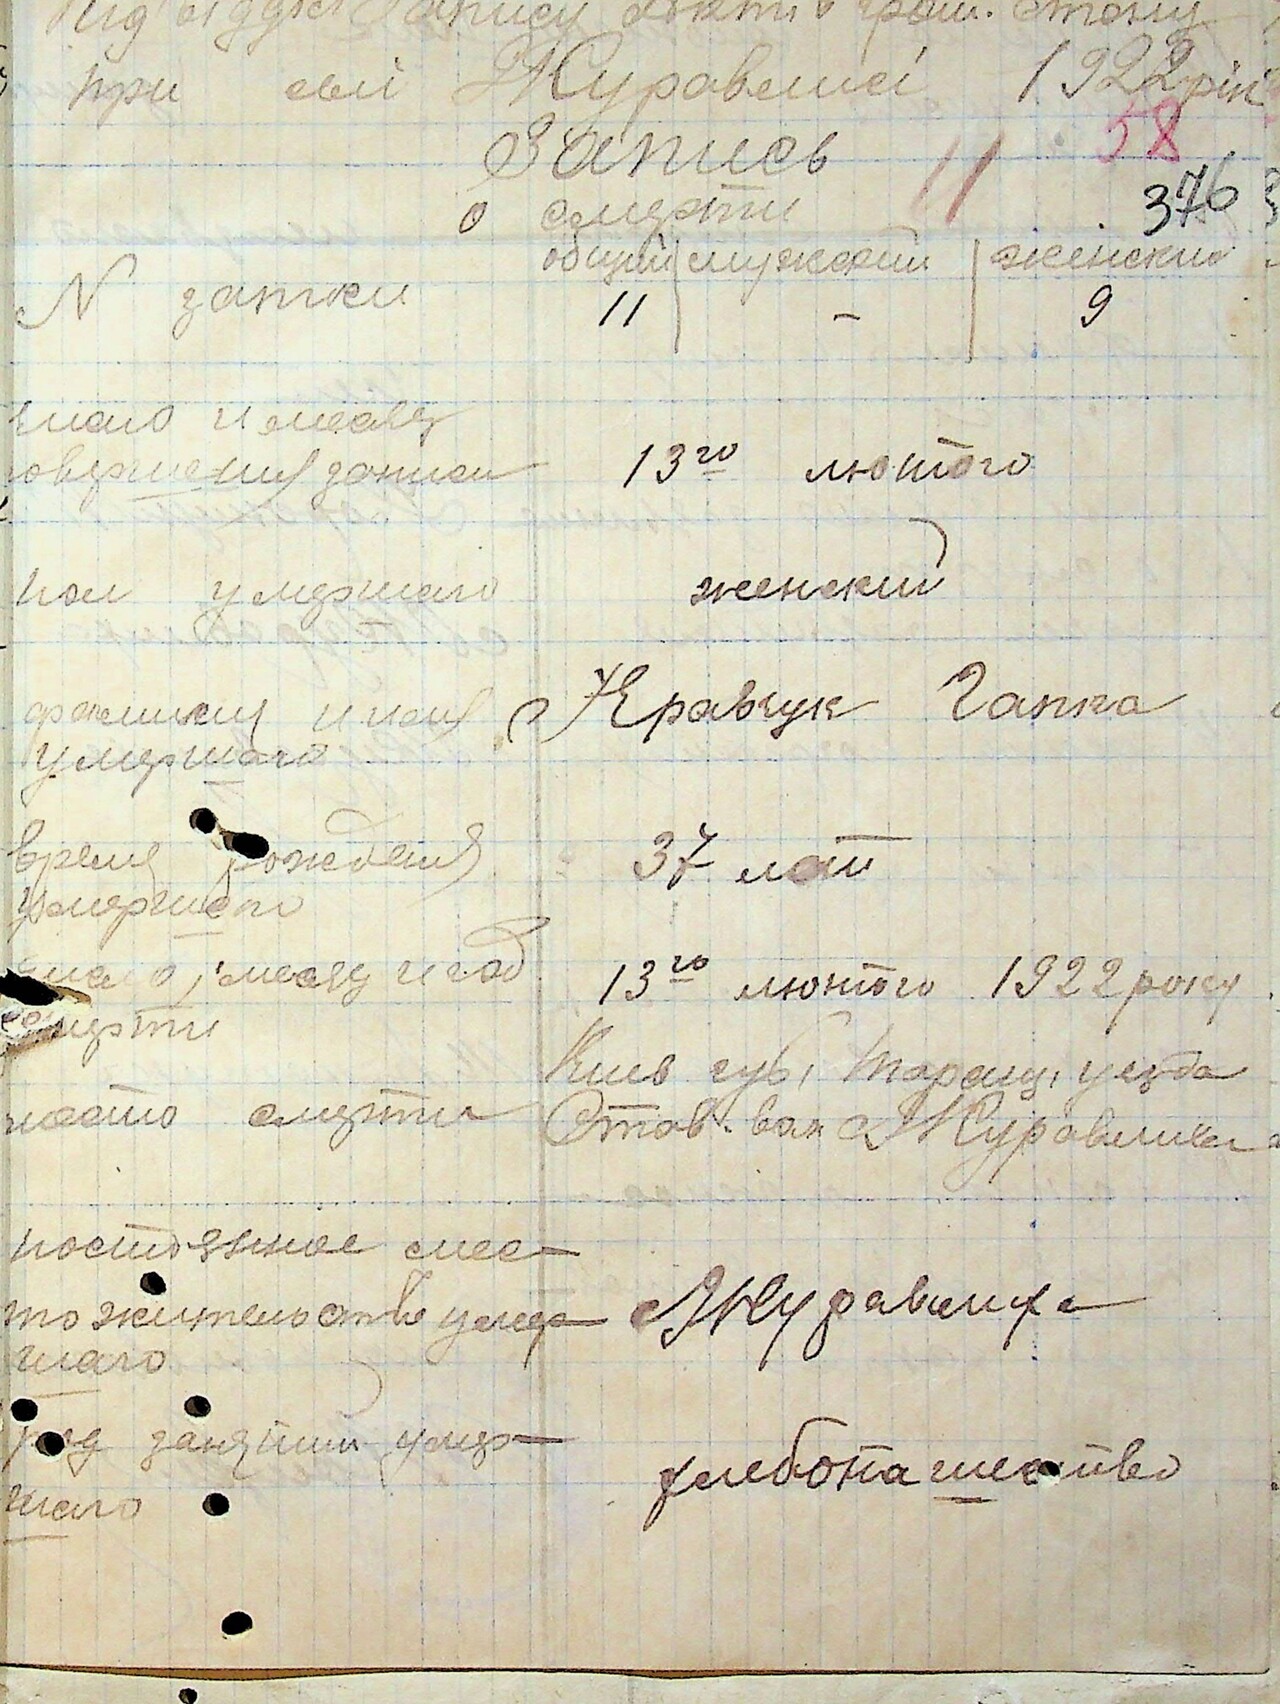 Підвідділ Запису Актів гром. Стану
при селі Журавлисі 1922 рік
58
Запись 11
376
о смерти
общий мужеский женский
N записи 11 - 9
число и месяц
совершения записи 13го лютого
пол умершаго женский
фамилия и имя Кравчук Гапка
умершаго
время рождения 37 лат
умершаго
число, месяц и год 13го лютого 1922 року
смерти
Киев губ, Таращ, уезда
место смерти Став. вол Журавлиха
постоянное мес-
тожительство умер- Журавлиха
шаго
род занятий умер-
шаго хлебопашество